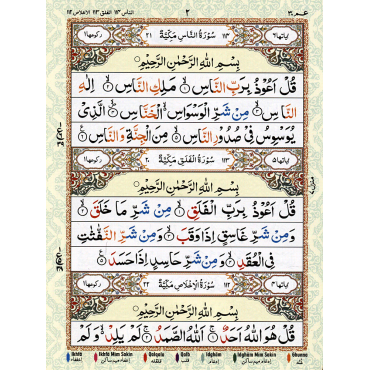 الناس ١١٤ الفلق ١١٣ الاخلاص ١١٢ ٢ عـمّ ٣٠
اٰیاتها ٦ ١١٤ سُوْرَةُ النَّاسِ مَكِّيَّةٌ ٢١ ركوعها ١
بِسْمِ اللّٰهِ الرَّحْمٰنِ الرَّحِيْمِ
قُلْ اَعُوْذُ بِرَبِّ النَّاسِ ۙ﴿۱﴾ مَلِكِ النَّاسِ ۙ﴿۲﴾ اِلٰهِ
النَّاسِ ۙ﴿۳﴾ مِنْ شَرِّ الْوَسْوَاسِ ۙ الْخَنَّاسِ ۙ﴿۴﴾ الَّذِیْ
يُوَسْوِسُ فِیْ صُدُوْرِ النَّاسِ ۙ﴿۵﴾ مِنَ الْجِنَّةِ وَ النَّاسِ ﴿۶﴾
اٰیاتها ٥ ١١٣ سُوْرَةُ الْفَلَقِ مَكِّيَّةٌ ٢٠ ركوعها ١
بِسْمِ اللّٰهِ الرَّحْمٰنِ الرَّحِيْمِ
قُلْ اَعُوْذُ بِرَبِّ الْفَلَقِ ۙ﴿۱﴾ مِنْ شَرِّ مَا خَلَقَ ۙ﴿۲﴾
وَ مِنْ شَرِّ غَاسِقٍ اِذَا وَقَبَ ۙ﴿۳﴾ وَ مِنْ شَرِّ النَّفّٰثٰتِ
فِی الْعُقَدِ ۙ﴿۴﴾ وَ مِنْ شَرِّ حَاسِدٍ اِذَا حَسَدَ ﴿۵﴾
اٰیاتها ٤ ١١٢ سُوْرَةُ الْاِخْلَاصِ مَكِّيَّةٌ ٢٢ ركوعها ١
بِسْمِ اللّٰهِ الرَّحْمٰنِ الرَّحِيْمِ
قُلْ هُوَ اللّٰهُ اَحَدٌ ۚ﴿۱﴾ اَللّٰهُ الصَّمَدُ ۚ﴿۲﴾ لَمْ يَلِدْ ۙ۬ وَ لَمْ
Ikhfa Ikhfa Mim Sakin Qalqala Qalb Idgham Idgham Mim Sakin Ghunna
اخفاء اخفاء میم ساکن قلقلہ قلب ادغام ادغام میم ساکن غنہ